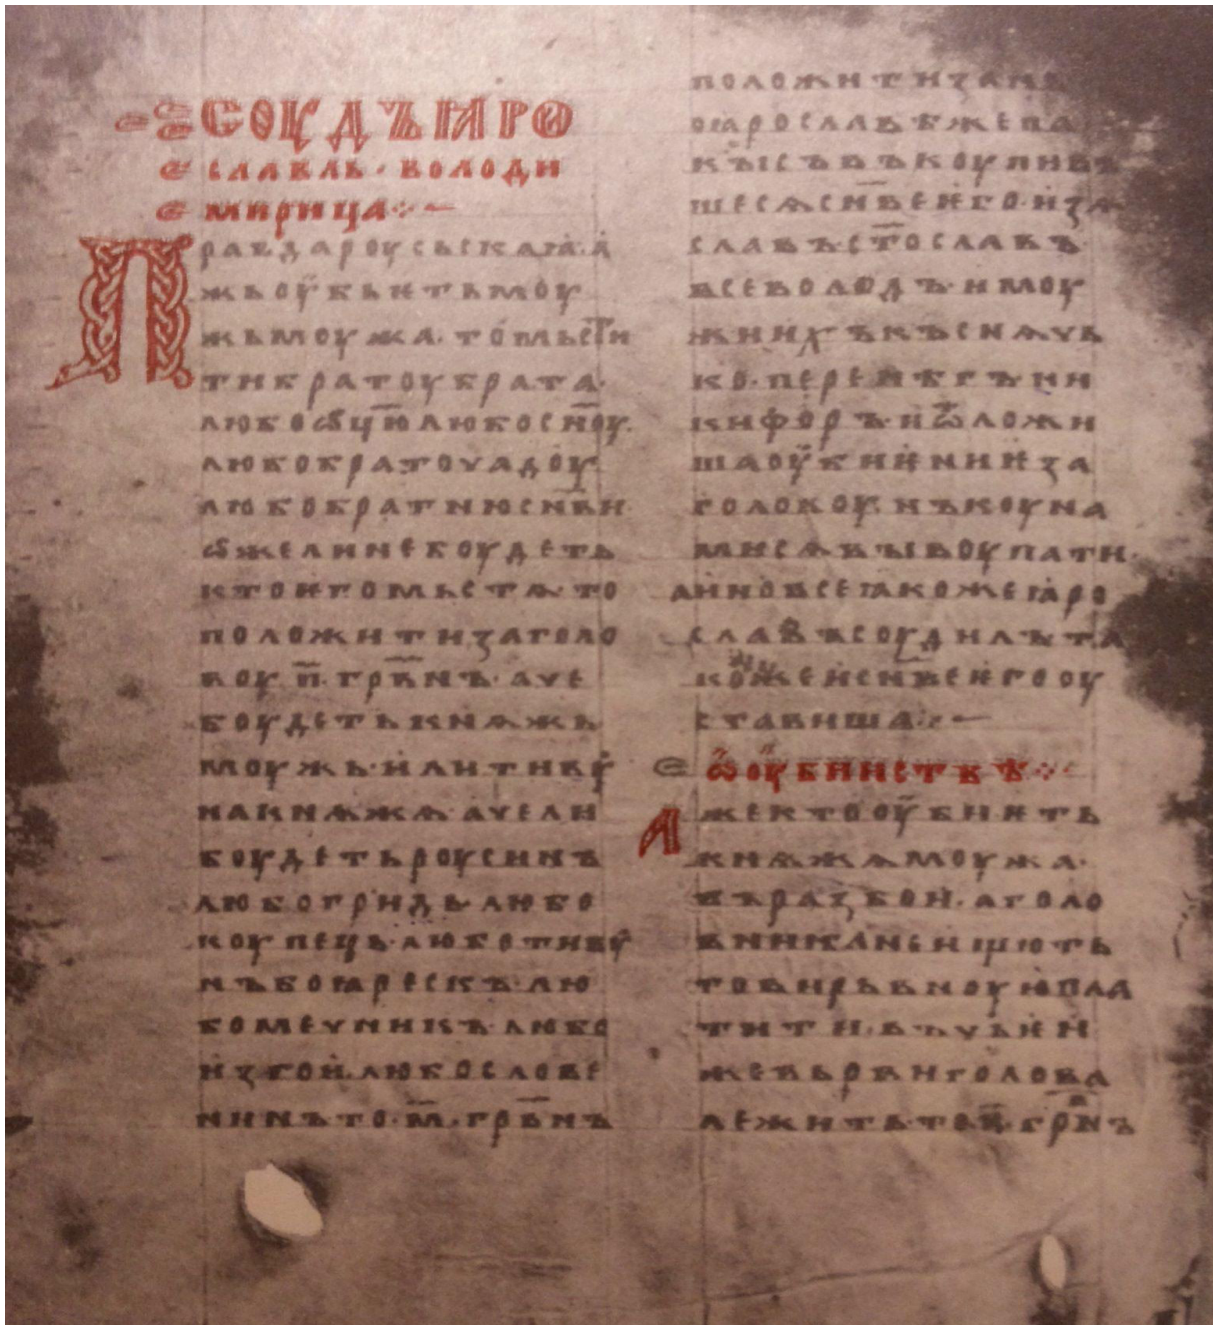 СОУДЪ ꙖРО
СЛАВЛЬ · ВОЛОДИ
МИРИЦА ⁘ —
ПРАВДА РОУСЬСКАꙖ · А
ЖЬ ОУБЬѤТЬ МОУ
ЖЬ МОУЖА · ТО МЬСТИ
ТИ БРАТОУ БРАТА ·
ЛЮБО Ѡ҃ЦЮ ЛЮБО СН҃ОУ ·
ЛЮБО БРАТОУЧАДОУ
ЛЮБО БРАТНЮ СН҃ВИ
ѠЖЕ ЛИ НЕ БОУДЕТЬ
КТО ѤГО МЬСТѦ · ТО
ПОЛОЖИТИ ЗА ГОЛО
ВОУ · П҃ · ГРВ҃НЪ · АЧЕ
БОУДЕТЬ КНѦЖЬ
МОУЖЬ · ИЛИ ТИВОУ
НА КНѦЖѦ · АЧЕ ЛИ
БОУДЕТЬ РОУСИНЪ
ЛЮБО ГРИДЬ · ЛЮБО
КОУПЕЦЬ · ЛЮБО ТИВОУ
НЪ БОꙖРЕСКЪ · ЛЮ
БО МЕЧНИКЪ · ЛЮБО
ИЗГОИ · ЛЮБО СЛОВЕ
НИНЪ ТО · М҃ · ГРВ҃НЪ
ПОЛОЖИТИ ЗА НЬ
ПО ꙖРОСЛАВѢ ЖЕ ПА
КЫ СЪВЪКОУПИВЪ
ШЕСѦ СН҃ВЕ ѤГО · ИЗѦ
СЛАВЪ · СТ҃ОСЛАВЪ ·
ВСЕВОЛОДЪ · И МОУ
ЖИ ИХЪ КЪСНѦЧЬ
КО · ПЕРЕНѢГЪ · НИ
КИФОРЪ · И ѾЛОЖИ
ША ОУБИѤНИѤ ЗА
ГОЛОВОУ · НЪ КОУНА
МИ СѦ ВЫКОУПАТИ ·
А ИНО ВСЕ ꙖКОЖЕ ꙖРО
СЛАВЪ СОУДИЛЪ ТА
КОЖЕ И СН҃ВЕ ѤГО ОУ
СТАВИША ⁘ —
Ѡ ОУБИИСТВѢ ⁘
АЖЕ КТО ОУБИѤТЬ
КНѦЖѦ МОУЖА ·
ВЪ РАЗБОИ · А ГОЛО
ВНИКА НЕ ИЩЮТЬ
ТО ВИРЬВНОУЮ ПЛА
ТИТИ · ВЪ ЧЬѤИ
ЖЕ ВЬРВИ ГОЛОВА
ЛЕЖИТЬ ТО П҃ · ГРВ҃НЪ